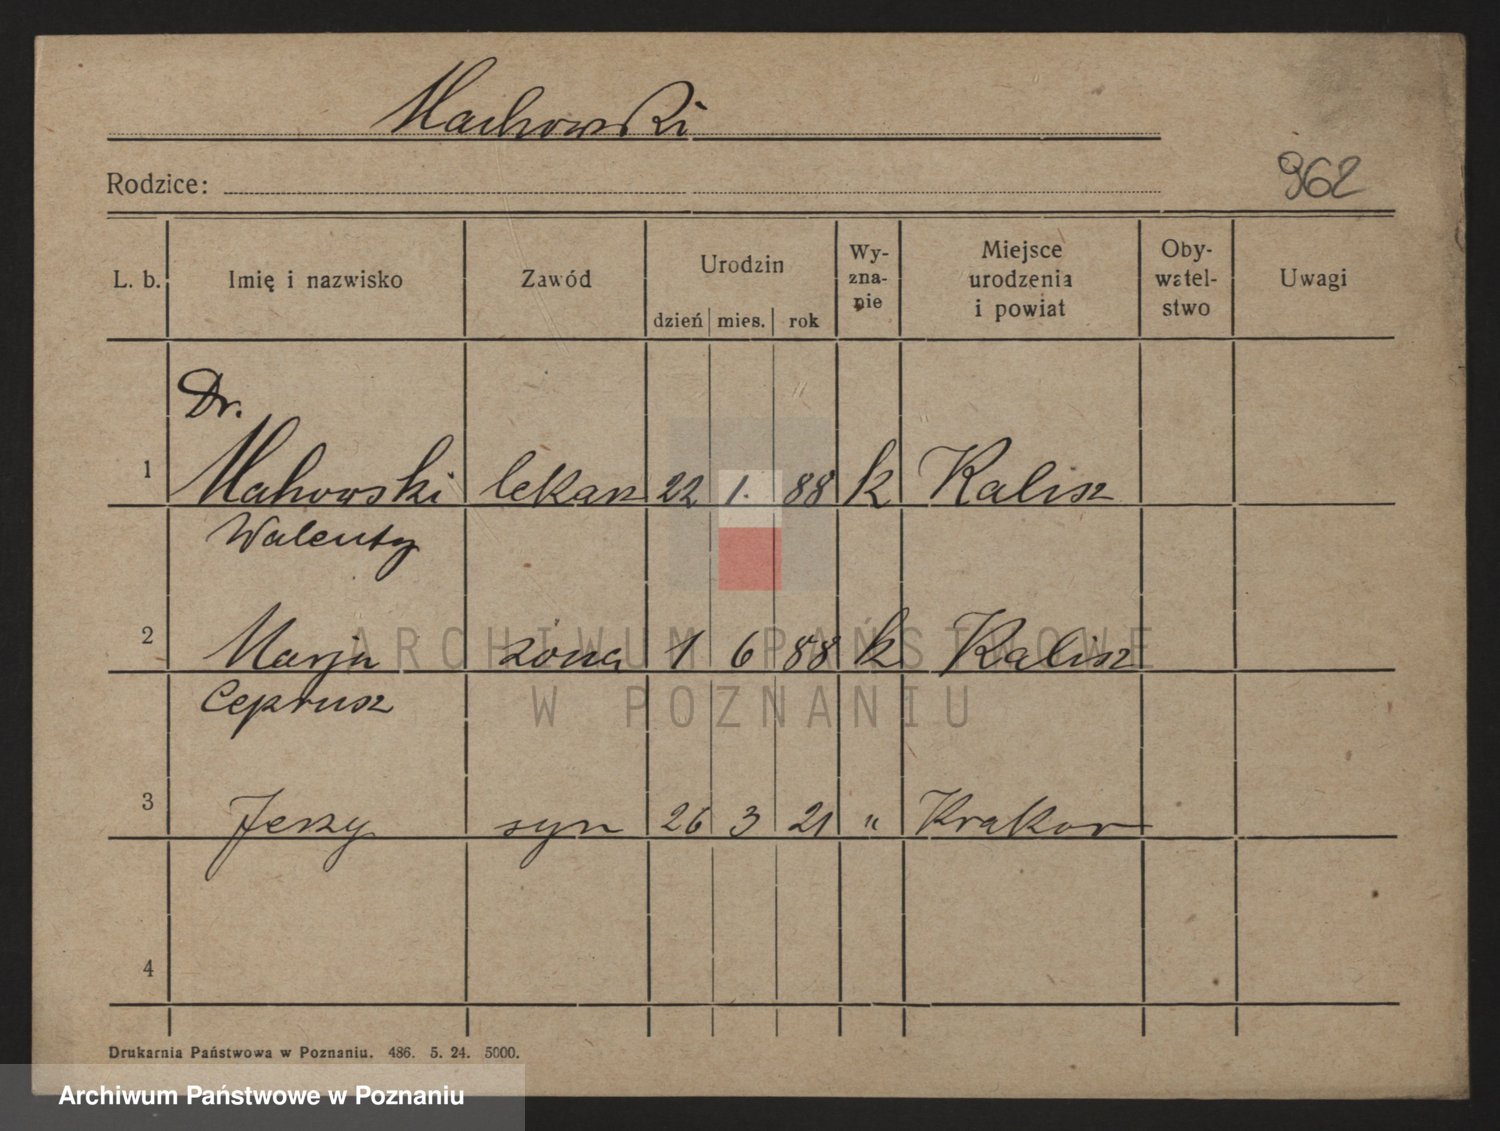 Machowski
Rodzice:
962
L. b. Imię i nazwisko Zawód Urodzin dzień mies. rok Wy-zna-nie Miejsce urodzenia i powiat Oby-watel-stwo Uwagi
Dr.
1 Mahowski lekarz 22 1. 88 k Kalisz
Walenty
2 Marja żona 1 6 88 k Kalisz
ARCHIWUM PAŃSTWOWE
Ceprusz
W POZNANIU
3 Jerzy syn 26 3 21 " Krakow
4
Drukarnia Państwowa w Poznaniu. 486. 5. 24. 5000.
Archiwum Państwowe w Poznaniu